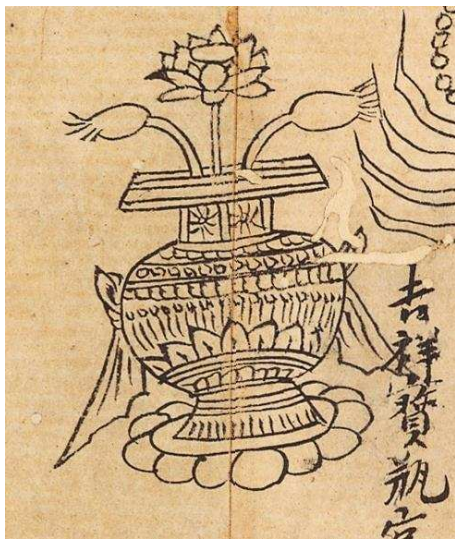 吉祥寶瓶